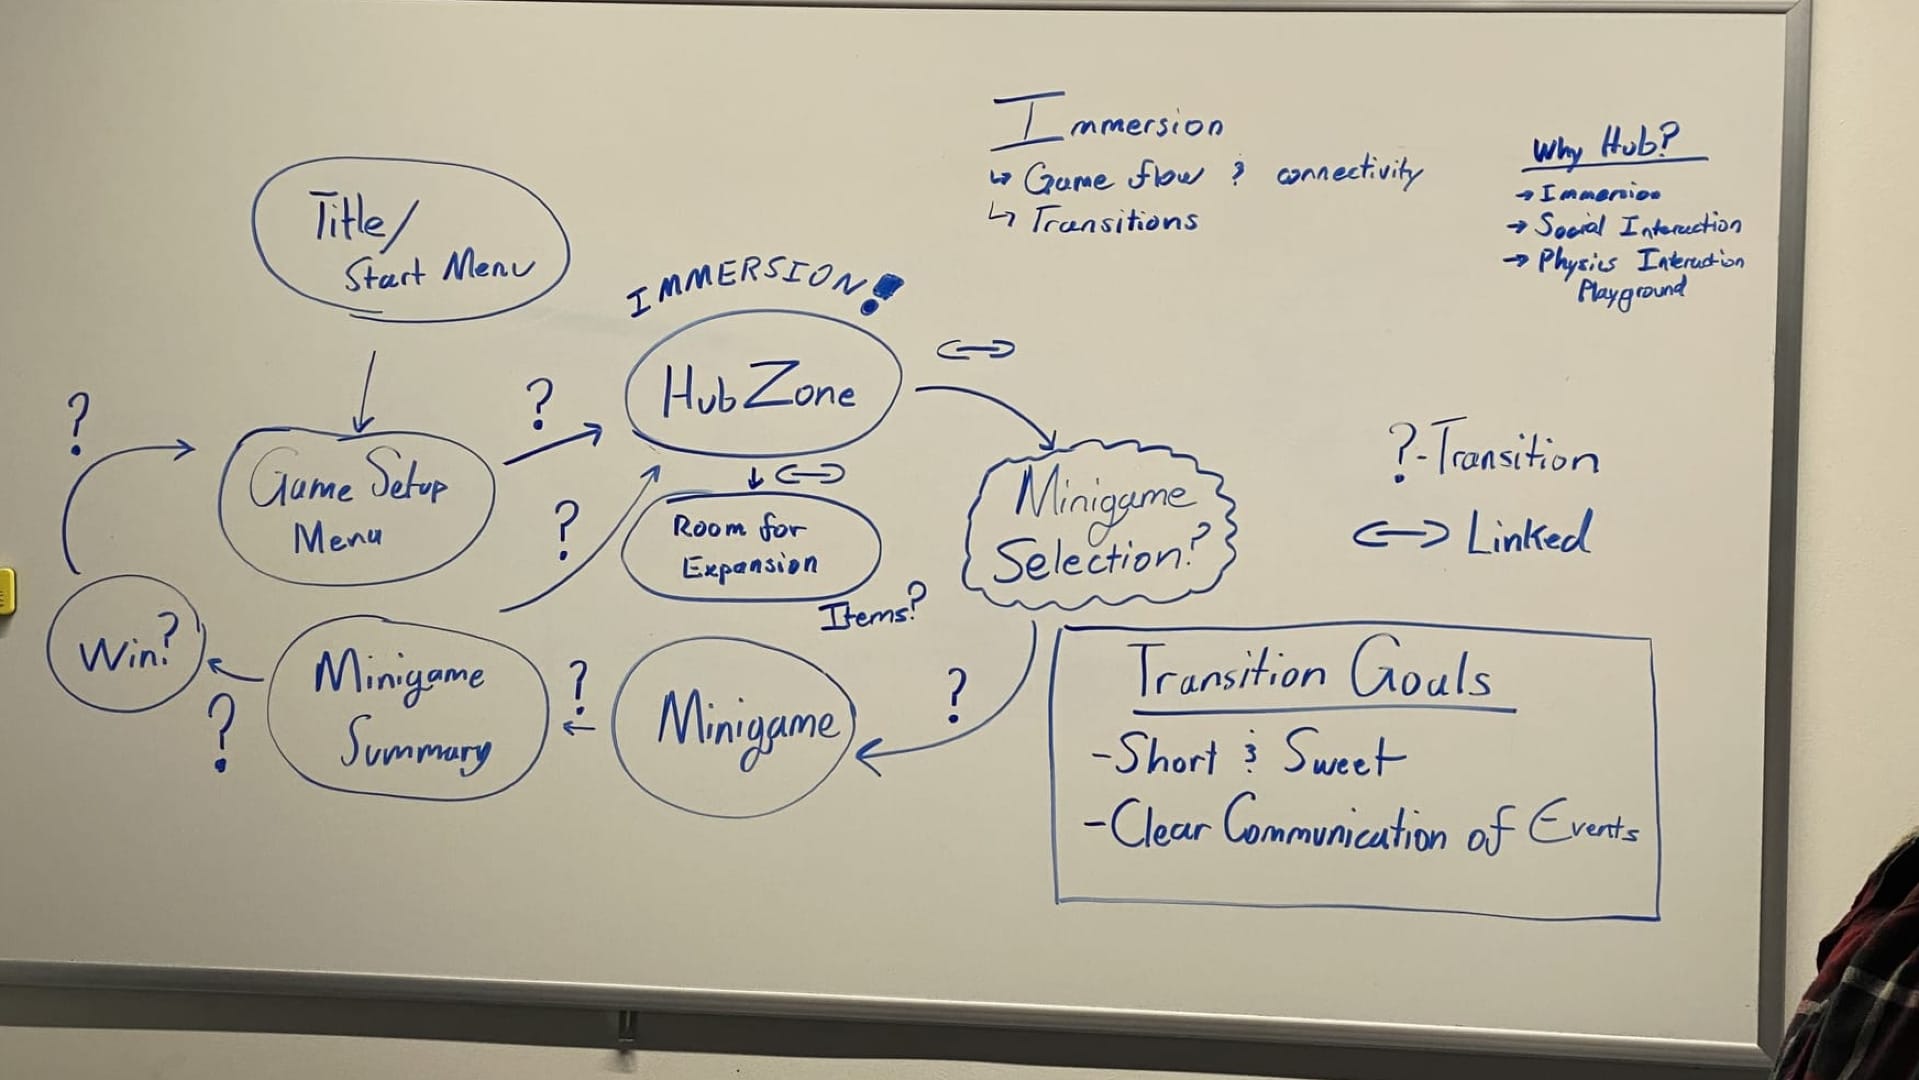 Immersion
↳ Game flow & connectivity
↳ Transitions
Why Hub?
→ Immersion
→ Social Interaction
→ Physics Interaction
Playground
Title/
Start Menu
IMMERSION!
HubZone
↔
?
?
Game Setup
Menu
?
↓ ↔
Room for
Expansion
Items?
Minigame
Selection?
?-Transition
↔ Linked
Win?
?
Minigame
Summary
?
Minigame
?
Transition Goals
-Short & Sweet
-Clear Communication of Events